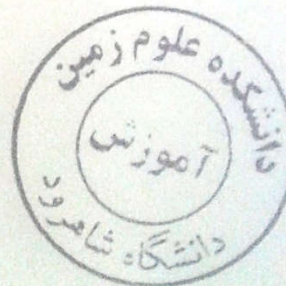 دانشکده علوم زمین
آموزش
دانشگاه شاهرود